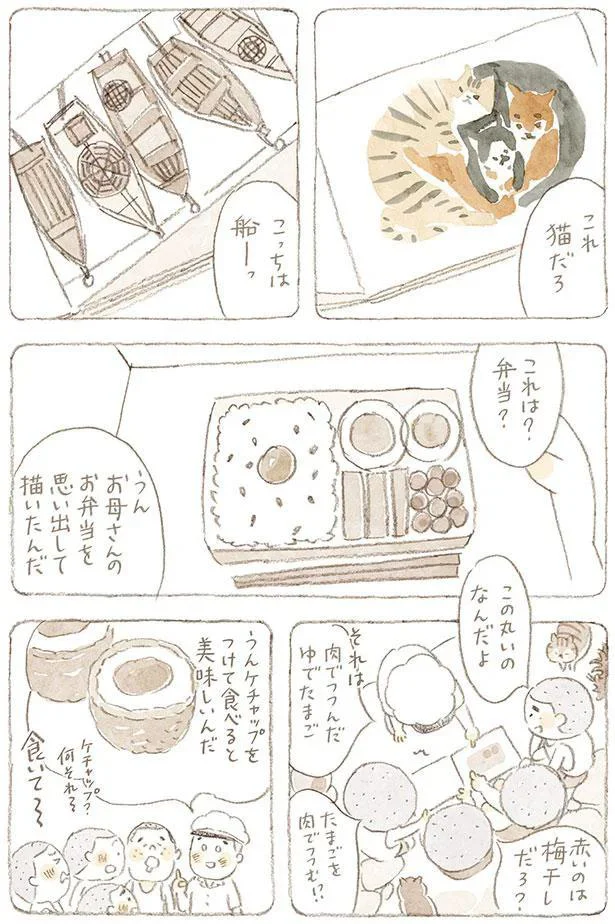 これ
猫だろ
こっちは
船ーっ
これは?
弁当?
うん
お母さんの
お弁当を
思い出して
描いたんだ
この丸いの
なんだよ
それは
肉でつつんだ
ゆでたまご
赤いのは
梅干し
だろ?
たまごを
肉でつつむ!?
うんケチャップを
つけて食べると
美味しいんだ
ケチャップ?
何それ〜
食いて〜〜